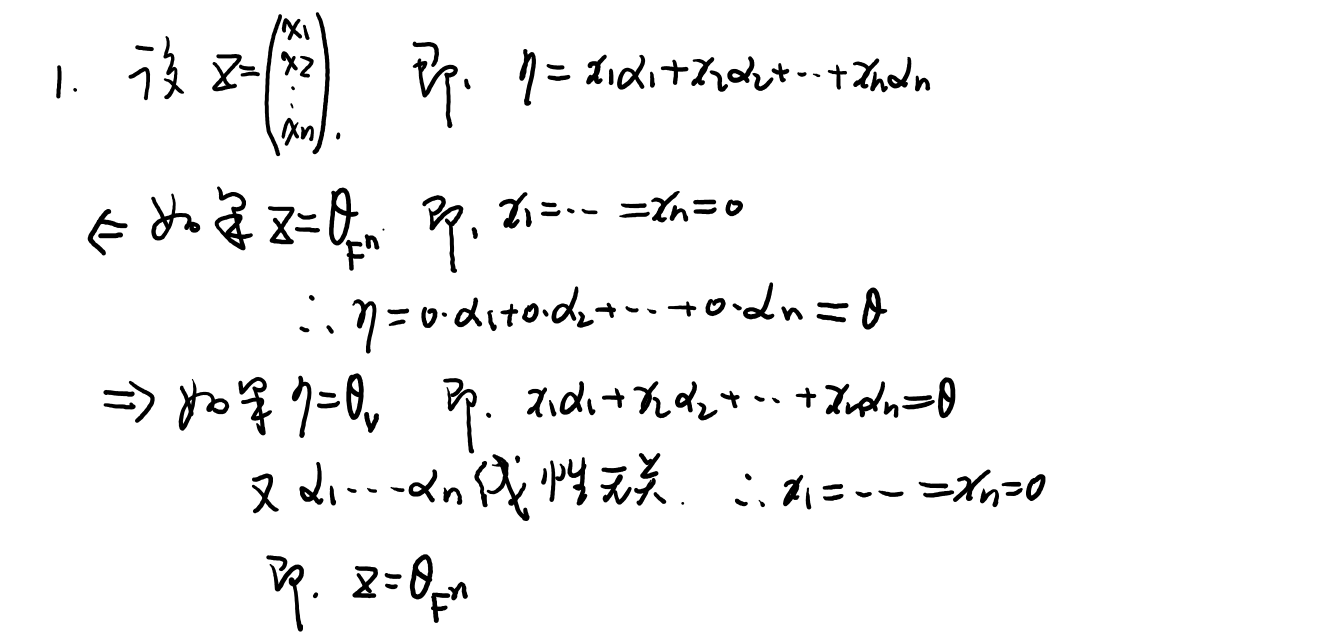 1. 设 Z=(x₁ x₂ ⋮ xn). 即. η=x₁α₁+x₂α₂+⋯+xnαn
⇐ 如果 Z=θ_Fⁿ. 即. x₁=⋯=xn=0
∴ η=0·α₁+0·α₂+⋯+0·αn=θ
⇒ 如果 η=θ_V 即. x₁α₁+x₂α₂+⋯+xnαn=θ
又 α₁⋯αn 线性无关. ∴ x₁=⋯=xn=0
即. Z=θ_Fⁿ